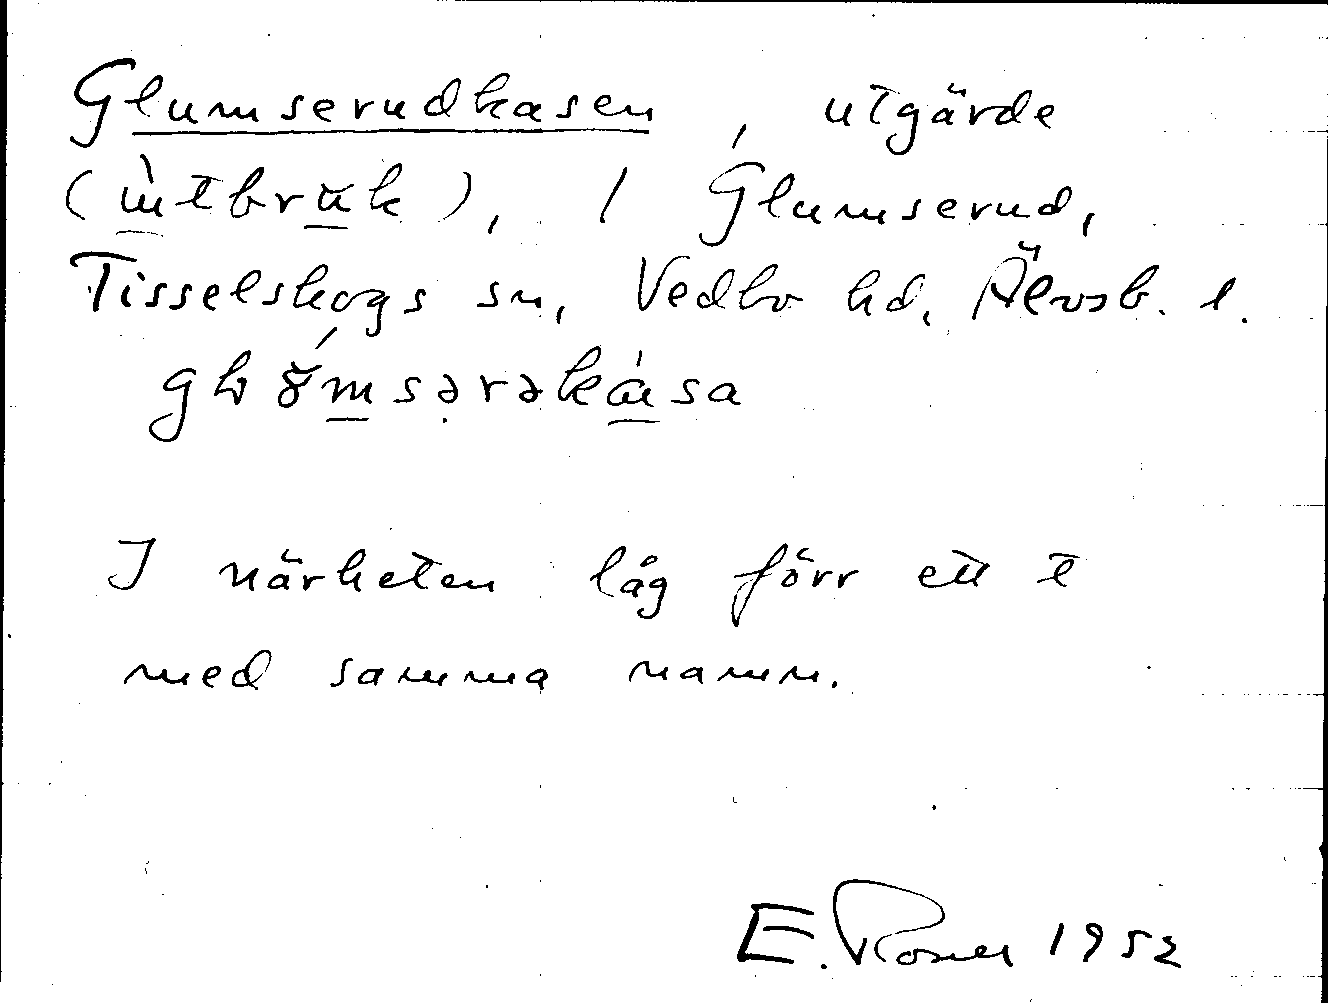 Glumserudkasen, utgärde
(ùtbruk), / Glumserud,
Tisselskogs sn, Vedbo hd, Älvsb. l.
I närheten låg förr ett t
med samma namn.
E. Rosell 1952